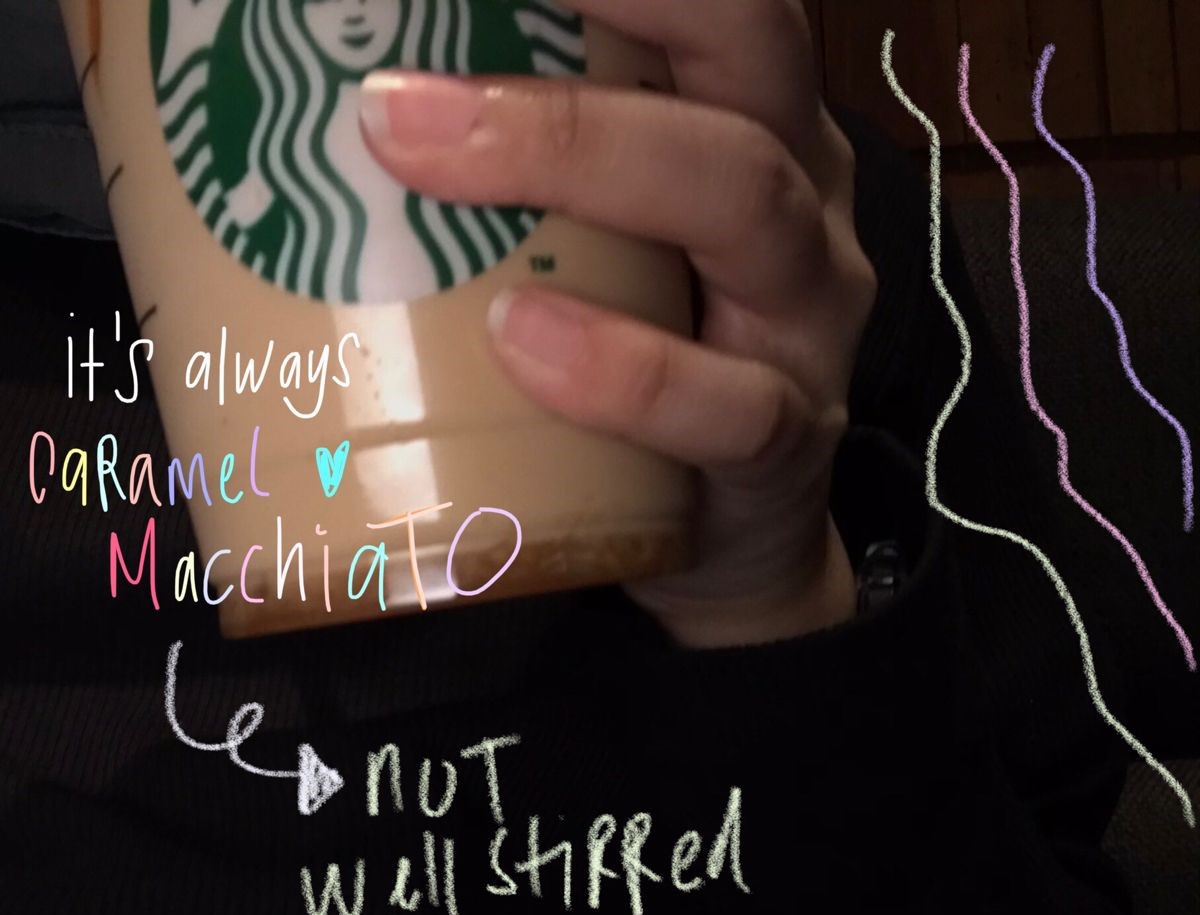 TM
it's always
CaRamel
MacchiaTO
not
well stirred